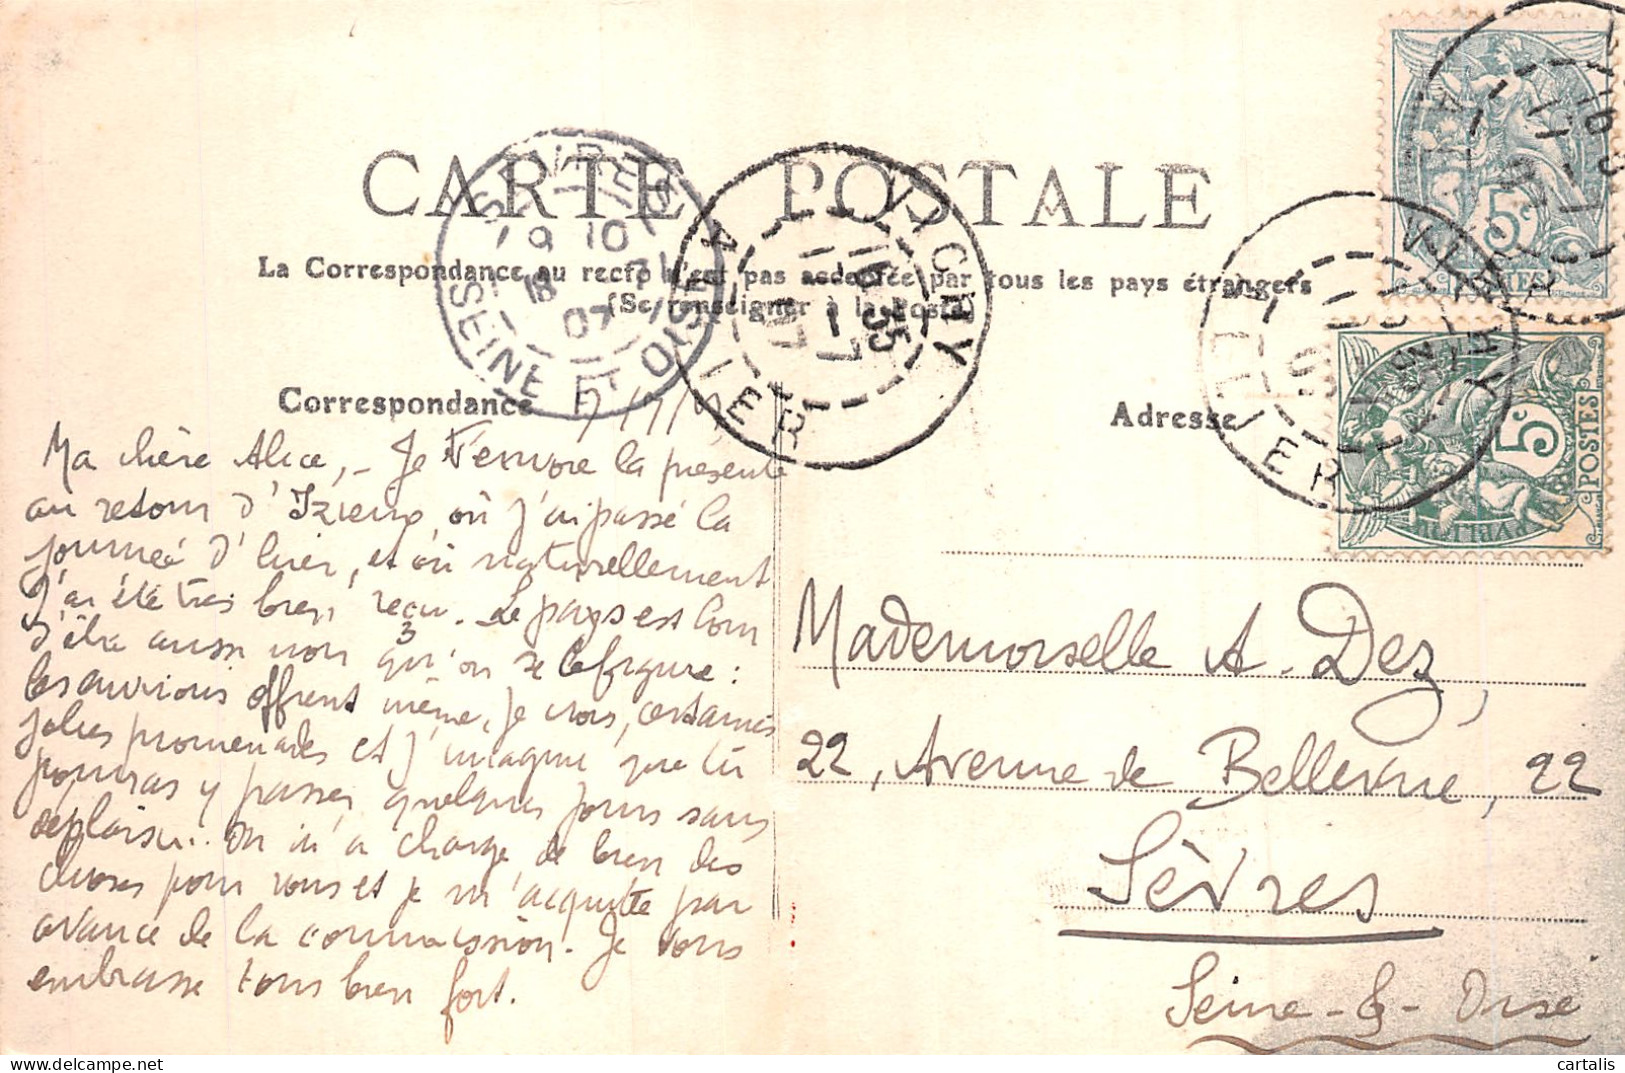 CARTE POSTALE
La Correspondance au recto n'est pas acceptée par tous les pays étrangers
(Se renseigner à la Poste)
Correspondance
Adresse
SEVRES
9 10
18 7
07
SEINE ET OISE
VICHY
16 35
ALLIER
VICHY
ALLIER
5c
POSTES
5c
POSTES
7/7/
Ma chère Alice, - Je t'envoie la présente
au retour d'Izieux, où j'ai passé la
journée d'hier, et où naturellement
j'ai été très bien reçu. Le pays est loin
d'être aussi noir qu'on se le figure :
les environs offrent même, je crois, certaines
jolies promenades et j'imagine que tu
pourras y passer quelques jours sans
déplaisir. On m'a chargé de bien des
choses pour vous et je m'acquitte par
avance de la commission. Je vous
embrasse tous bien fort.
Mademoiselle A. Dez,
22, Avenue de Bellevue, 22
Sèvres
Seine-&-Oise
cartalis